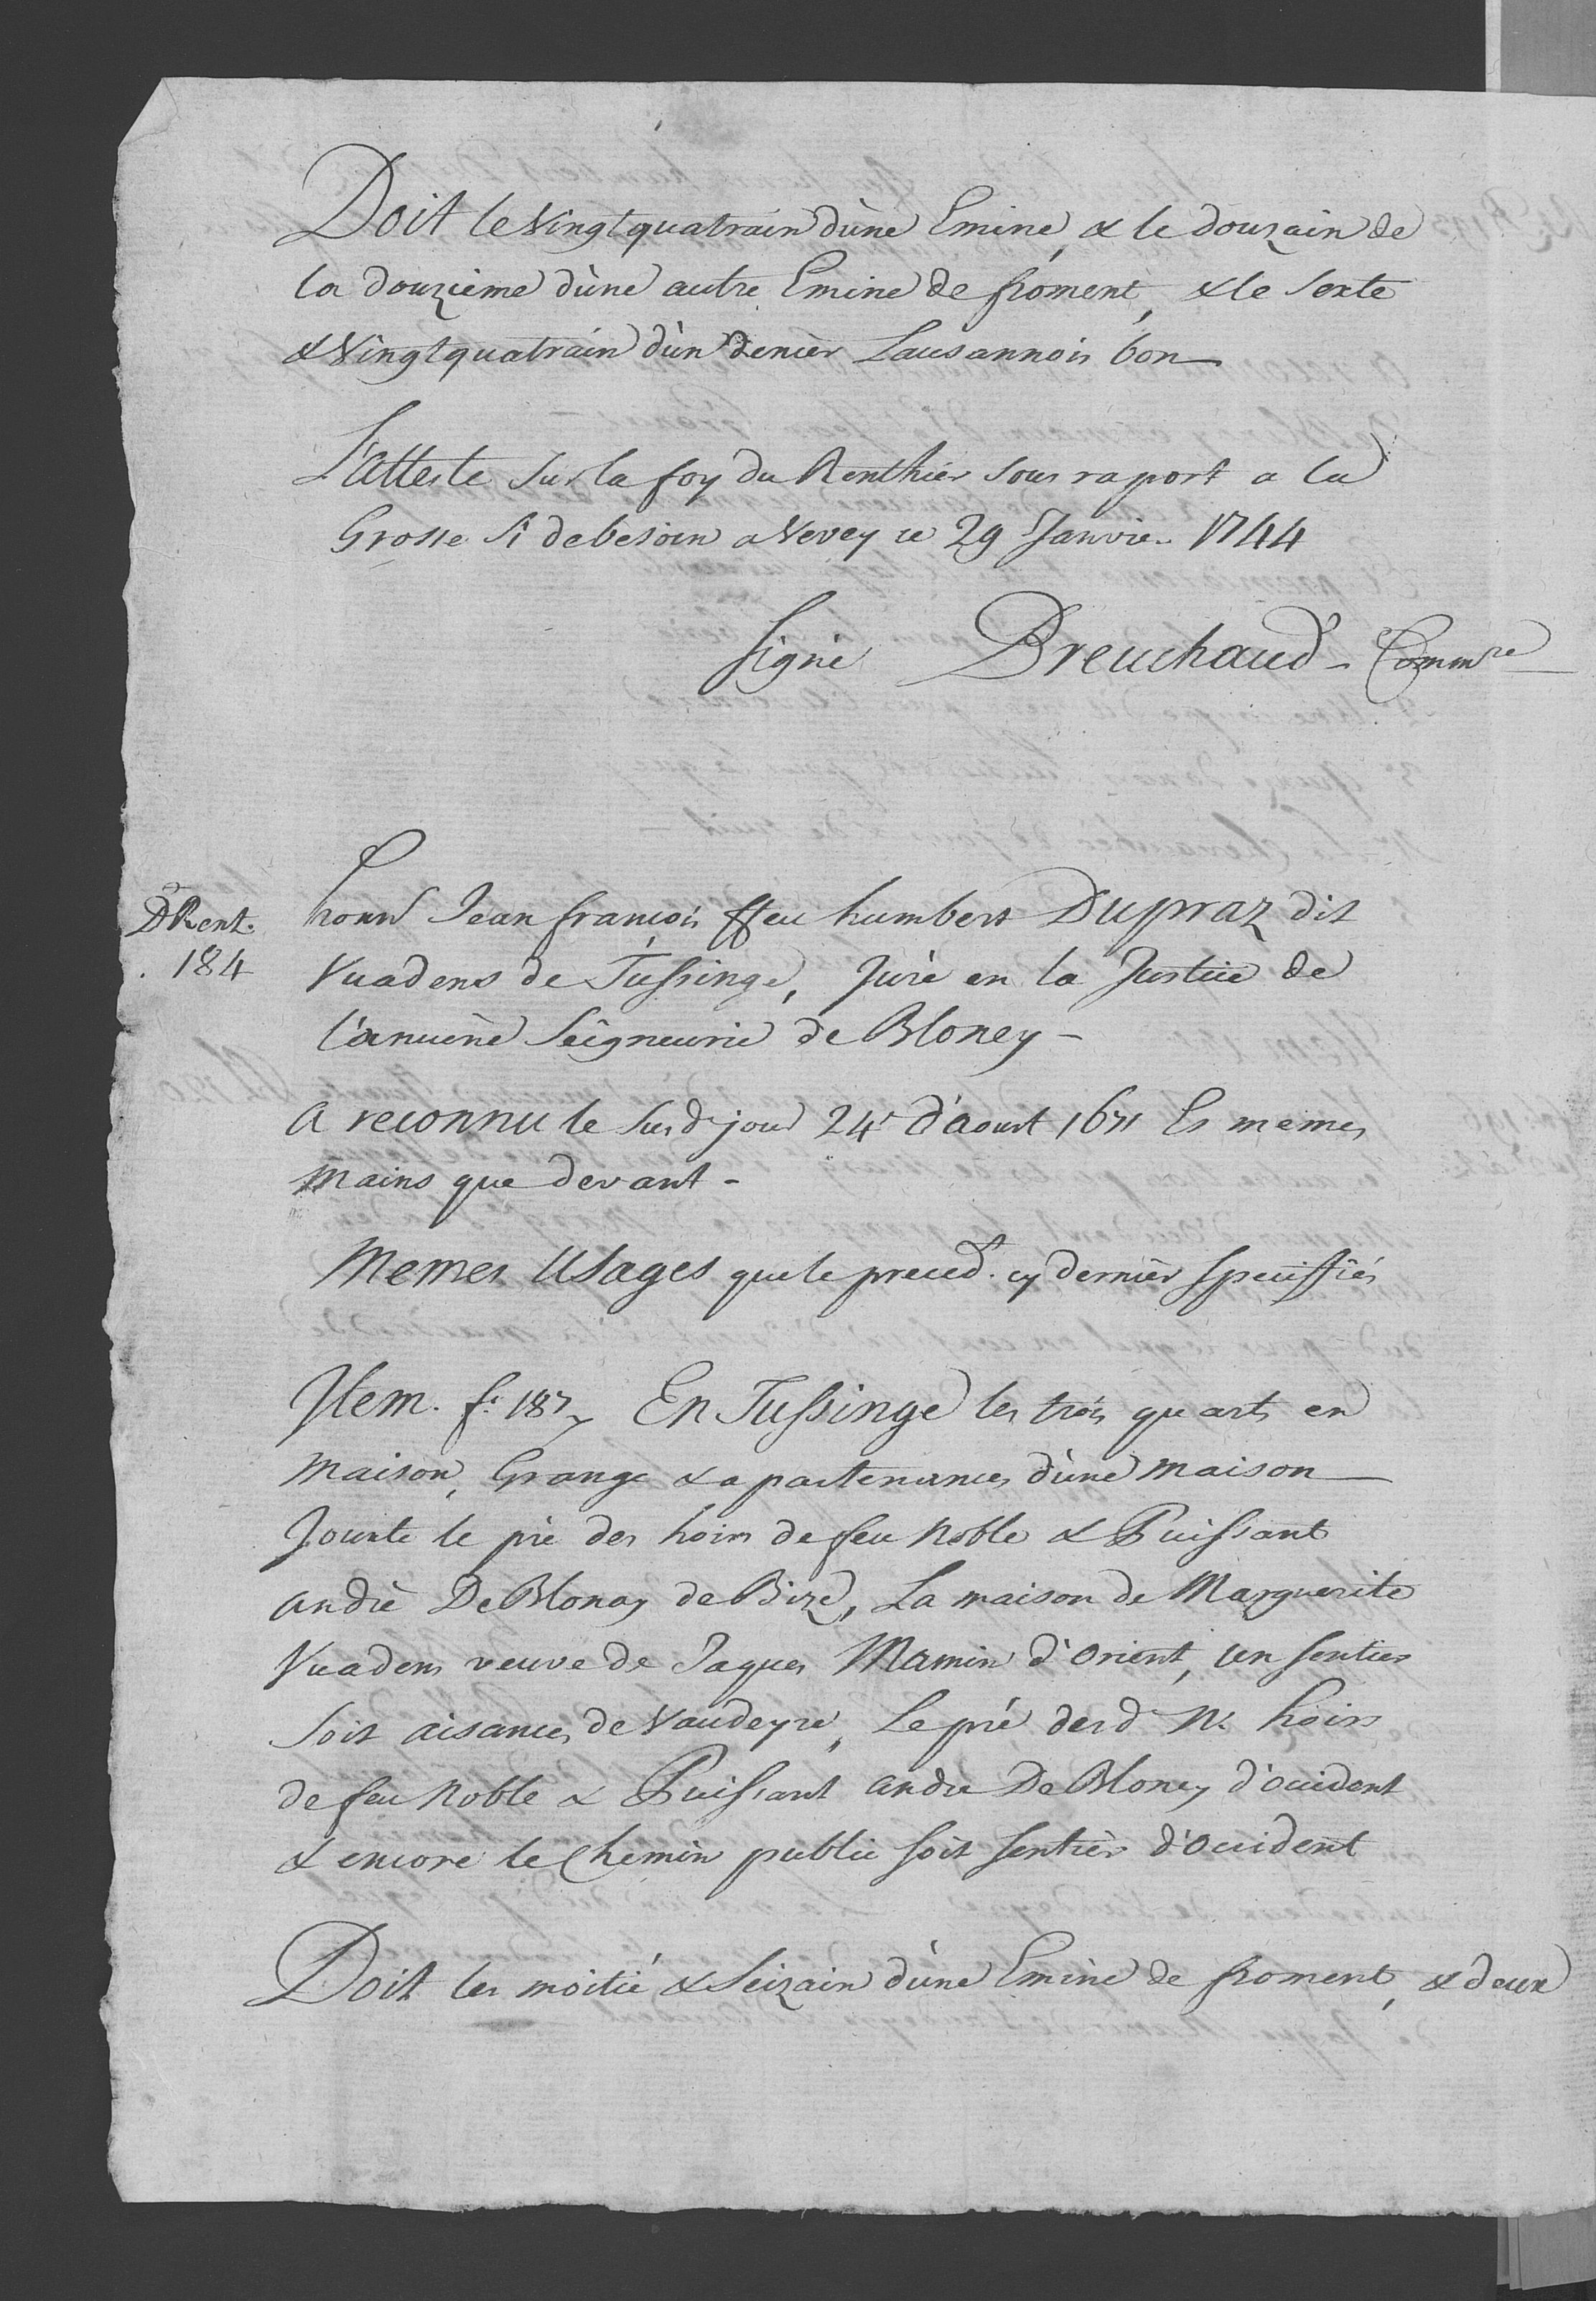 Doit le Vingtquatrain d'une Emine, & le douzain de
la douzième d'une autre Emine de froment, & le sexte
& Vingtquatrain d'un denier Lausannois bon
L'atteste sur la foy du Renthier sous raport a la
Grosse si de besoin a Vevey ce 29 Janvier 1744
signé Breuchaud - Commre
D Rent.
184
honn Jean françois ffeu humbert Dupraz dit
Vuadens de Tussinge, Juré en la Justice de
l'anciene Seigneurie de Bloney -
a reconnu le susd jour 24e d'aoust 1671 Es memes
mains que devant -
Memes Usages que le preced. cy dernier speciffiés
Item. fo 187 En Tussinge les trois quarts en
maison, Grange & apartenances d'une maison
Jouxte le pré des hoirs de feu Noble & Puissant
andré De Blonay de Bize, La maison de Marguerite
Vuadens veuve de Jaques Mamin d'Orient, un sentier
soit aisances de Vaudeyre, Le pré desd N. hoirs
de feu Noble & Puissant andre De Bloney d'occident
& encore le Chemin public soit sentier d'occident
Doit les moitié & Seizain d'une Emine de froment, & deux